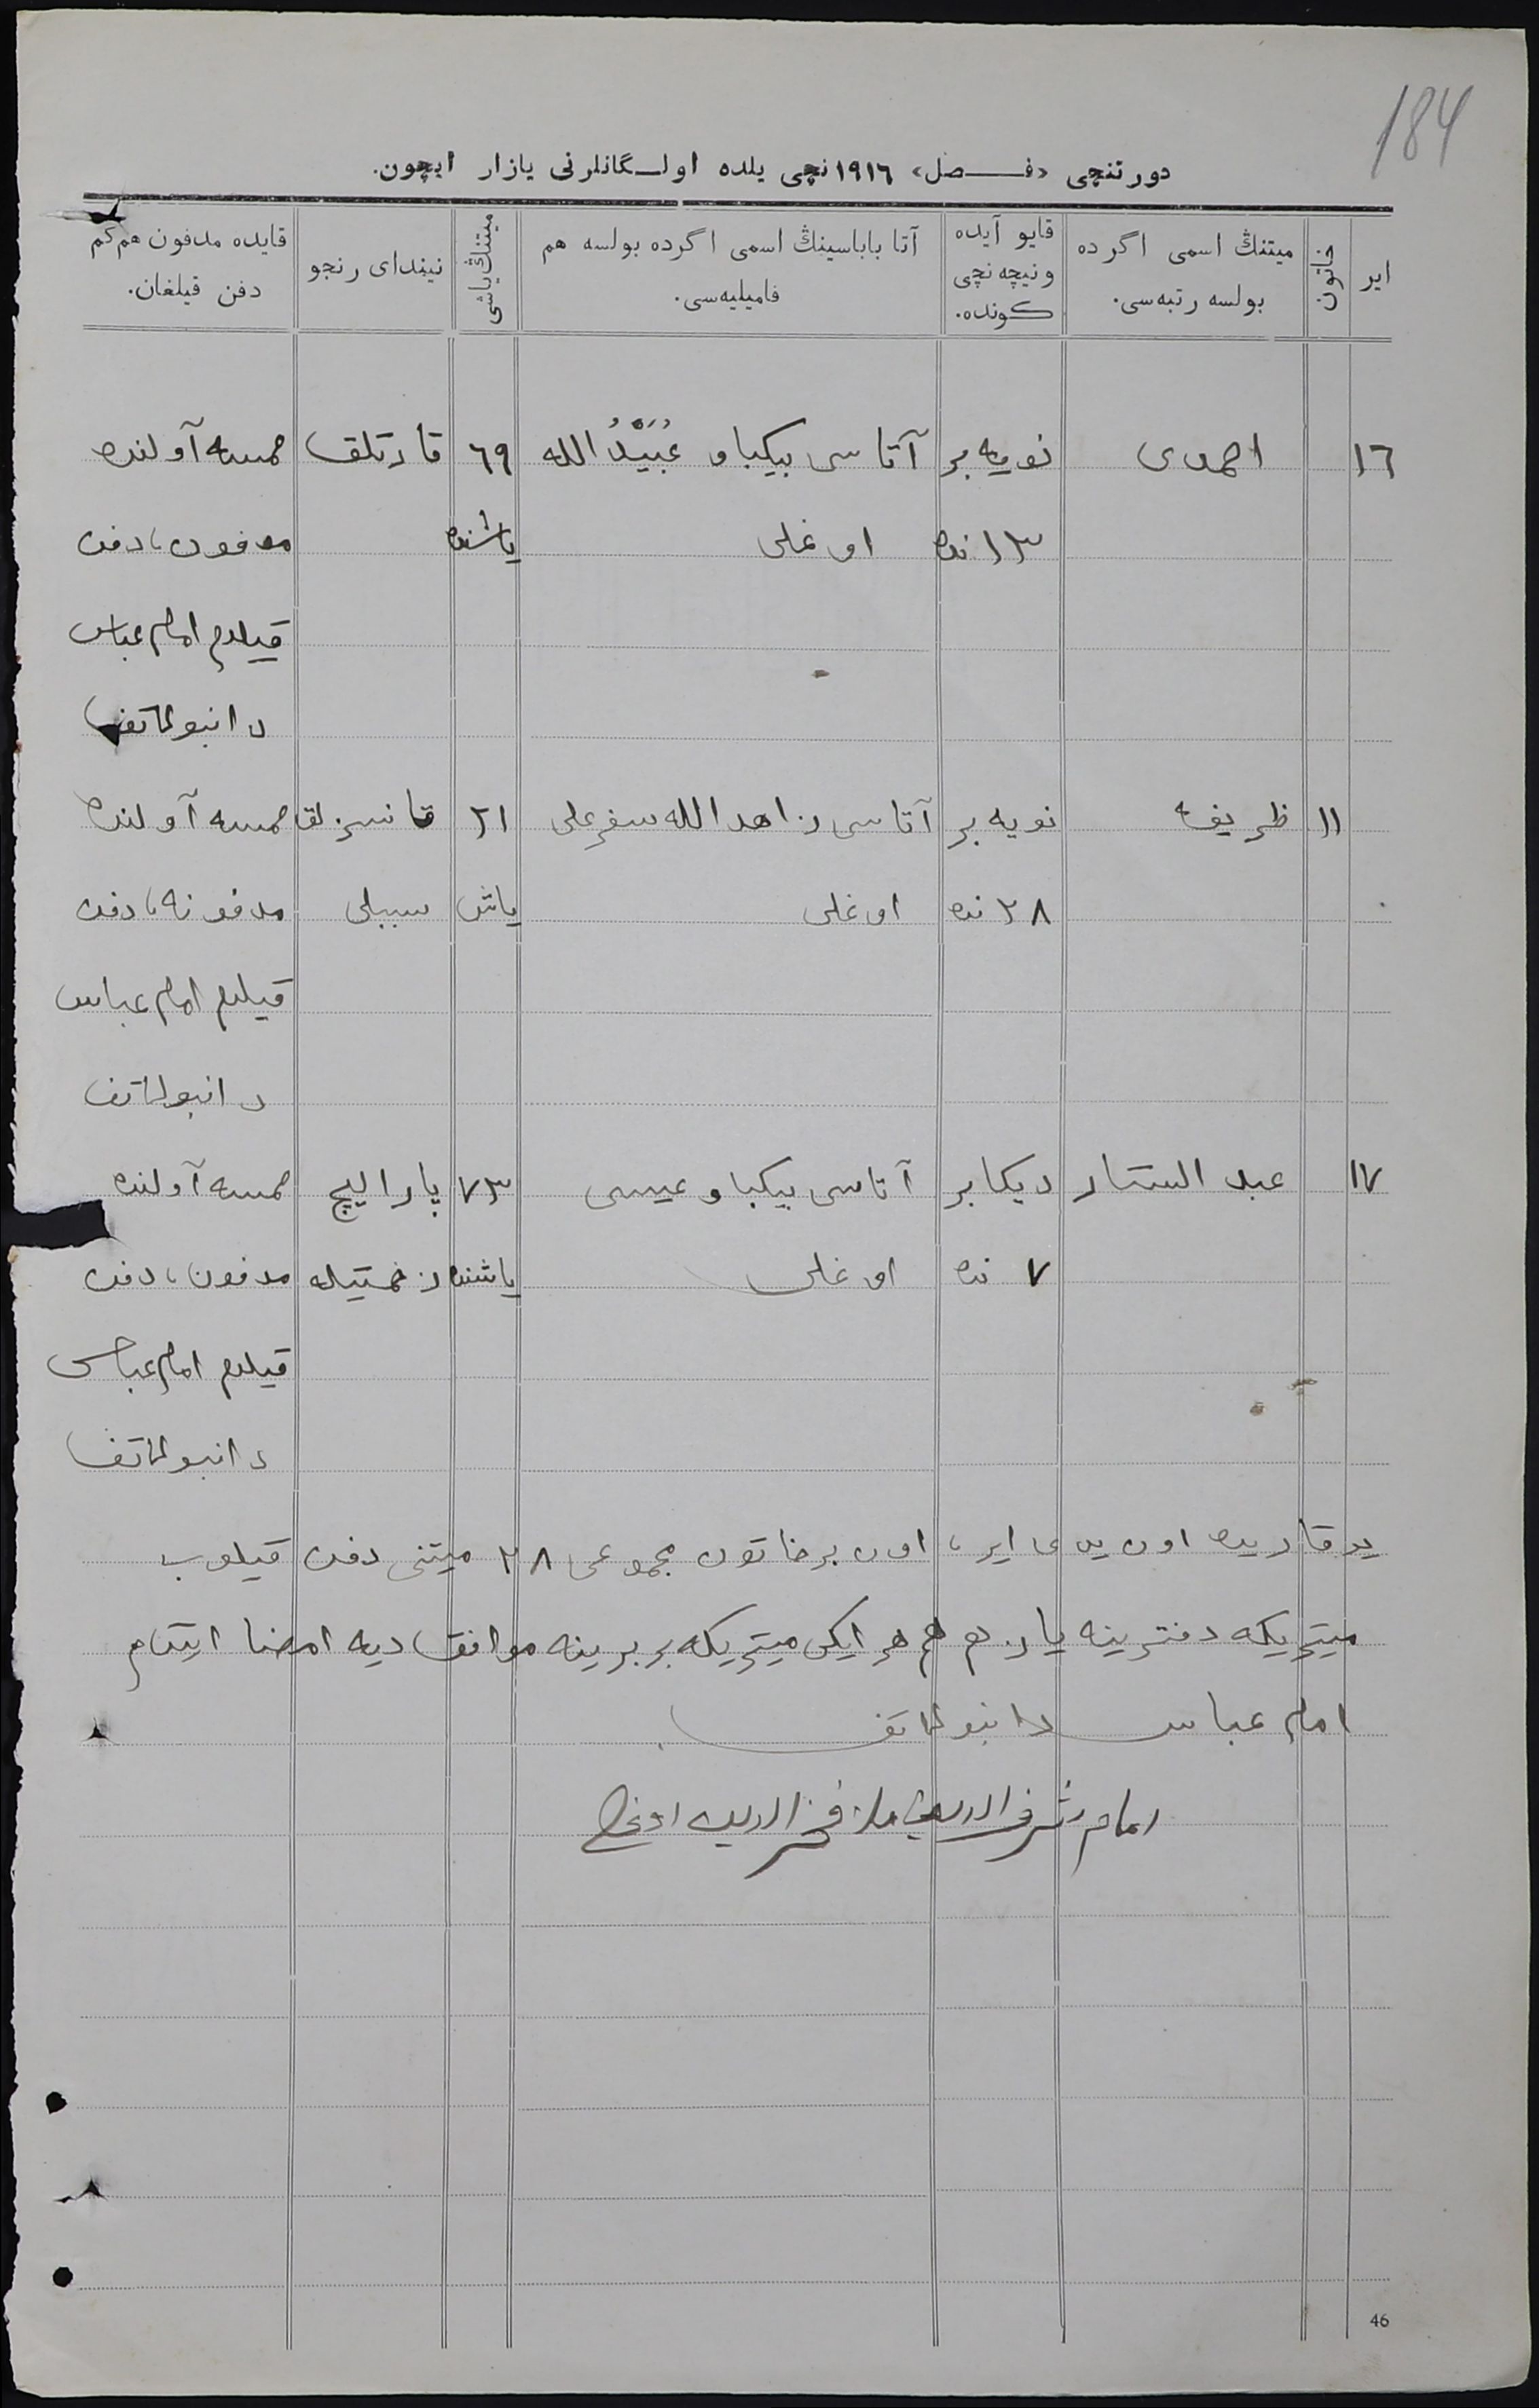 184
دورتنچی «فـــصل» ١٩١٦ نچی یلده اولـگانلرنی یازار ایچون.
ایر
خاتون
میتنڭ اسمی اگرده بولسه رتبه‌سی.
قایو آیده ونیچه نچی کونده.
آتا باباسینڭ اسمی اگرده بولسه هم فامیلیه‌سی.
میتنڭ یاشی
نیندای رنجو
قایده مدفون هم کم دفن قیلغان.
١٦ احمدی نویه بر آتاسی بیکباو عُبَیْدُ الله ٦٩ قارتلق آولنده
١٣ نده اوغلی یاشنده مدفون، دفن
قیلدم امام عباس
دانبولاتف
١١ ظریفه نویه بر آتاسی زاهدالله سفرعلی ٢١ قانسزلق آولنده
٢٨ نده اوغلی یاش سببلی مدفونه، دفن
قیلدم امام عباس
دانبولاتف
١٧ عبد الستار دیکابر آتاسی بیکباو عیسی ٧٣ پارالیچ آولنده
٧ نده اوغلی یاشنده زحمتیله مدفون، دفن
قیلدم امام عباس
دانبولاتف
یوقاریده اون یدی ایر، اون بر خاتون مجموعی ٢٨ میتنی دفن قیلوب
میتریکه دفترینه یازدم هم هر ایکی میتریکه بر برینه موافق دیه امضا ایتدم
امام عباس دانبولاتف
امام شرف الدین ملا فخر الدین اوغلی
46